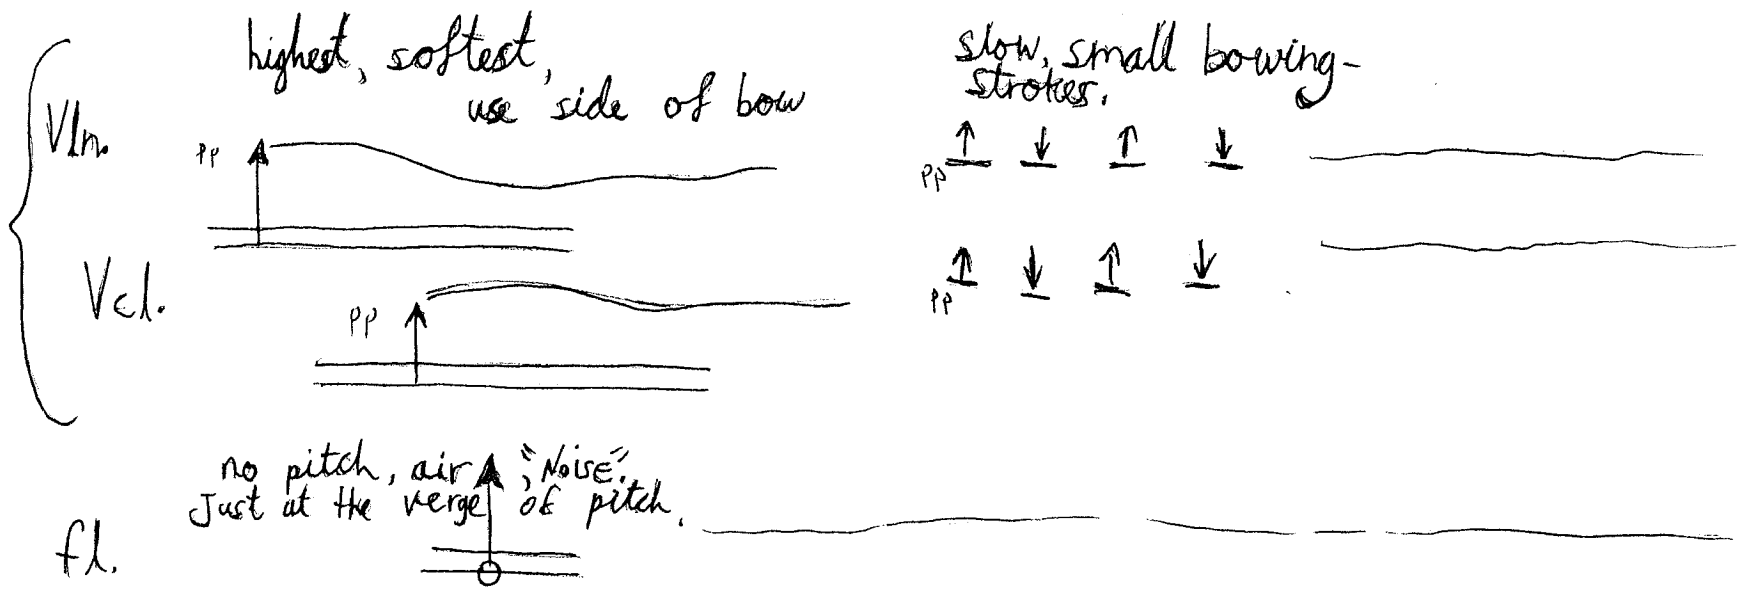 highest, softest,
use side of bow
slow, small bowing-
strokes.
Vln.
pp
pp
Vcl.
pp
pp
no pitch, air, "Noise".
Just at the verge of pitch.
fl.